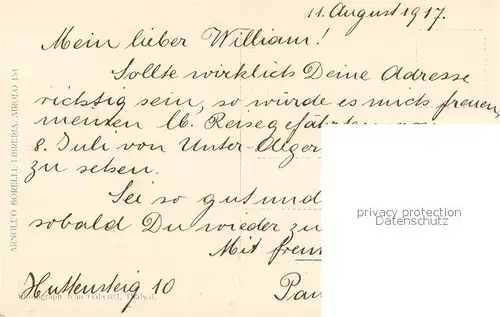 11. August 1917.
Mein lieber William!
Sollte wirklich Deine Adresse
richtig sein, so würde es mich freuen,
meinen lb. Reisegefährten
8. Juli von Unter-
zu sehen.
Sei so gut und
sobald Du wieder zu
Mit
Huttensteig 10
ARNOLDO BORELLI, LIBRERIA, AIROLO 154
Photograph Jean Gaberell, Thalwil
privacy protection
Datenschutz